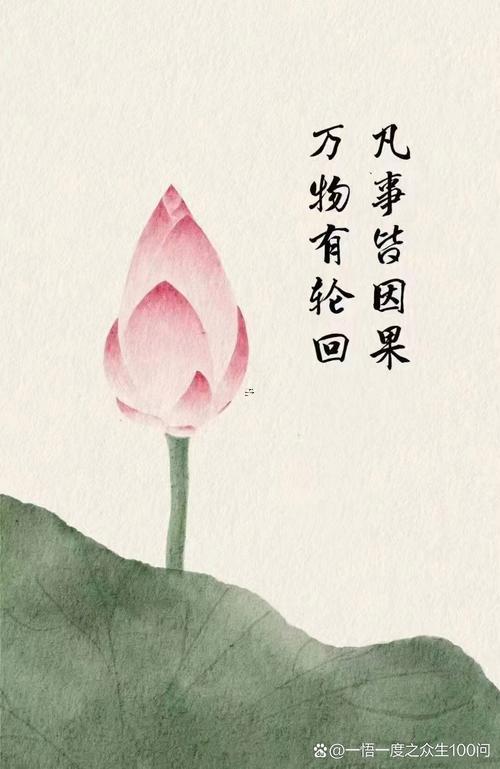 凡事皆因果
万物有轮回
@一悟一度之众生100问